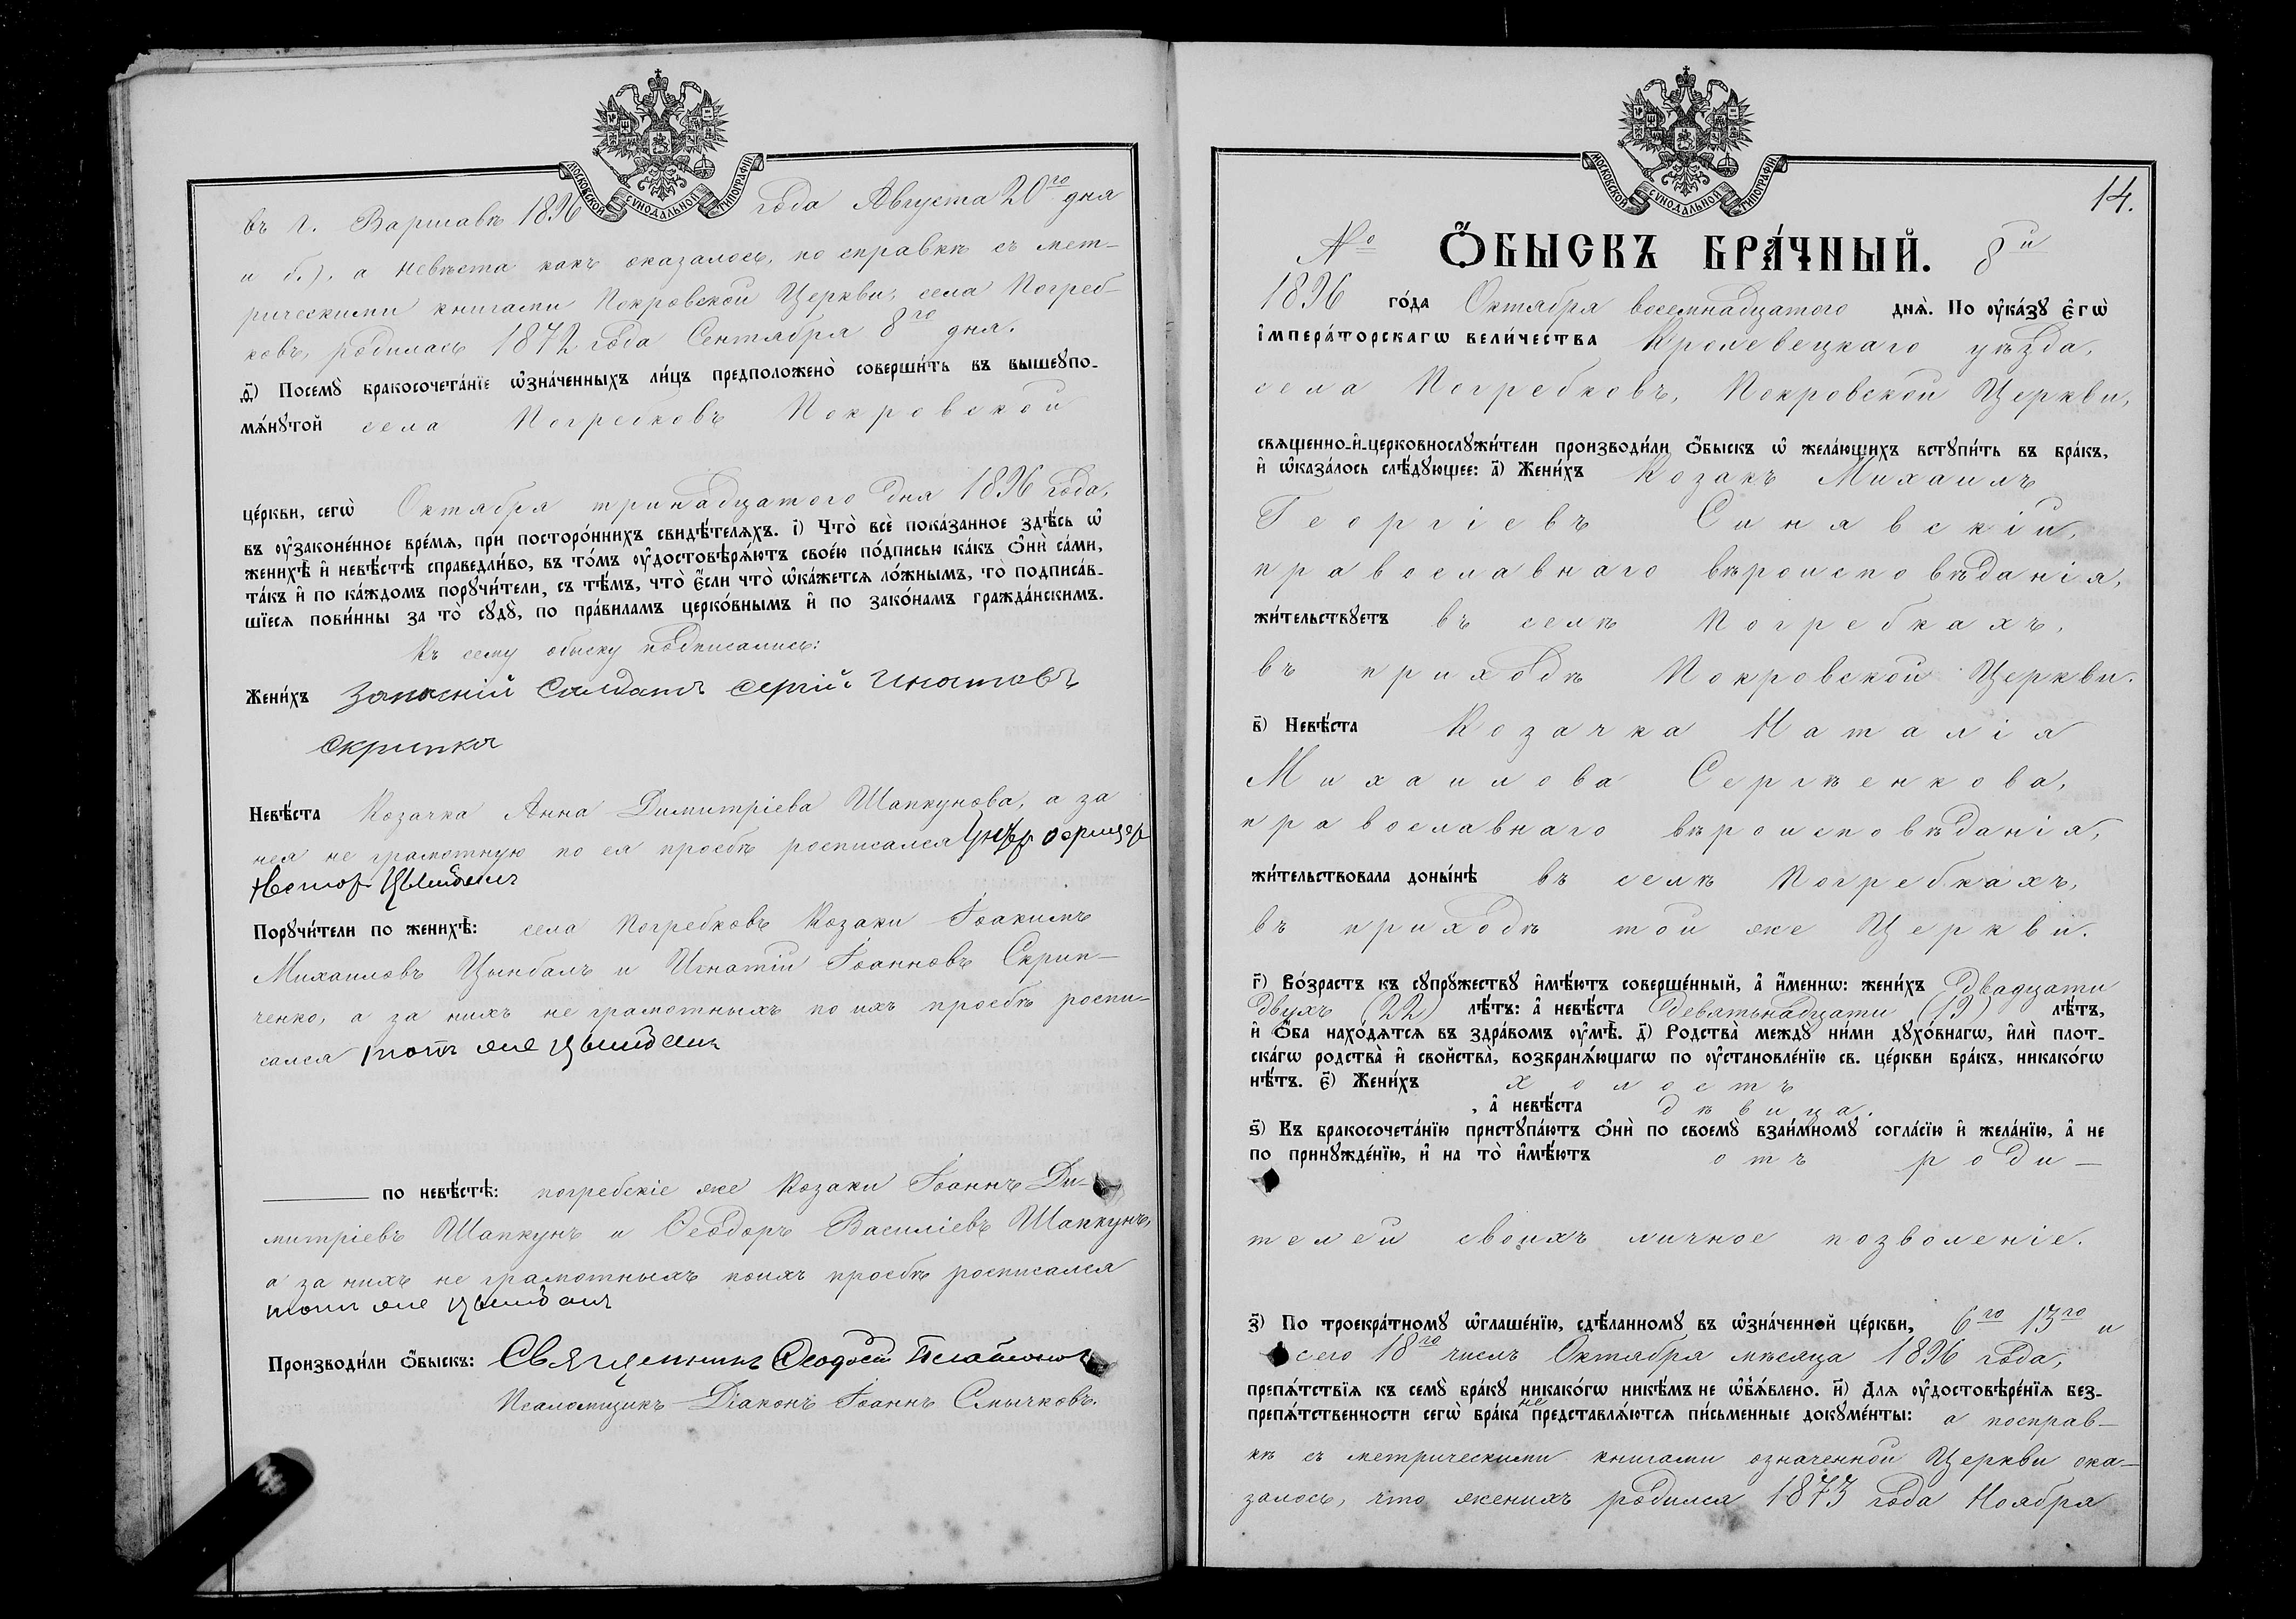 МОСКОВСКОЙ СѴНОДАЛЬНОЙ ТИПОГРАФІИ
въ г. Варшавѣ 1896 года Августа 20го дня
и б.), а невѣста какъ оказалось, по справкѣ съ мет-
рическими книгами Покровской Церкви, села Погреб-
ковъ, родилась 1872 года Сентября 8го дня.
ѳ҃) Посемꙋ̀ бракосочета́нїе ѡ҆зна́ченныхъ ли́цъ предположено̀ соверши́ть въ вышеꙋпо-
мѧ́нꙋтой села Погребковъ Покровской
це́ркви, сегѡ̀ Октября тринадцатого дня 1896 года,
въ ᲂу҆законе́нное вре́мѧ, при посторо́ннихъ свидѣ́телѧхъ. і҃) Что̀ всѐ пока́занное здѣ́сь ѡ҆
женихѣ̀ и҆ невѣ́стѣ справедли́во, въ то́мъ ᲂу҆достовѣрѧ́ютъ свое́ю по́дписью ка́къ ѻ҆нѝ са́ми,
та́къ и҆ по ка́ждомъ порꙋчи́тели, съ тѣ́мъ, что̀ є҆́сли что̀ ѡ҆ка́жетсѧ ло́жнымъ, то̀ подписа́в-
шїесѧ пови́нны за то̀ сꙋдꙋ̀, по пра́виламъ церко́внымъ и҆ по зако́намъ гражда́нскимъ.
Къ сему обыску подписались:
Жени́хъ Запасній Салдатъ Сергій Игнатовъ
Скрипка
Невѣ́ста Козачка Анна Димитріева Шапкунова, а за
нея не грамотную по ея просьбѣ росписался Унтер офицер
Нестор Цымбалъ
Порꙋчи́тели по женихѣ̀: села Погребковъ Козаки Іоакимъ
Михаиловъ Цымбалъ и Игнатій Іоанновъ Скрип-
ченко, а за нихъ не грамотныхъ по ихъ просьбѣ роспи-
сался тотъ же Цымбалъ
по невѣ́стѣ: погребскіе же Козаки Іоаннъ Ди-
митріевъ Шапкунъ и Ѳеодоръ Василіевъ Шапкунъ,
а за нихъ не грамотныхъ по ихъ просьбѣ росписался
тотъ же Цымбалъ
Производи́ли ѻ҆́быскъ: Священникъ Ѳеодосій
Псаломщикъ Діаконъ Іоаннъ Смычковъ.
МОСКОВСКОЙ СѴНОДАЛЬНОЙ ТИПОГРАФІИ
14.
№ ѺБЫСКЪ БРА́ЧНЫЙ. 8й
1896 го́да Октября восемнадцатого днѧ̀. По ᲂу҆ка́зꙋ є҆гѡ̀
і҆мпера́торскагѡ вели́чества Кролевецкаго уѣзда,
села Погребковъ, Покровской Церкви,
свѧщенно-и҆-церковнослꙋжи́тели производи́ли ѻ҆́быскъ ѡ҆ жела́ющихъ встꙋпи́ть въ бра́къ,
и҆ ѡ҆каза́лось слѣ́дꙋющее: а҃) Жени́хъ Козакъ Михаилъ
Георгіевъ Синявскій,
православнаго вѣроисповѣданія,
жи́тельствꙋетъ въ селѣ Погребкахъ,
въ приходѣ Покровской Церкви.
в҃) Невѣ́ста Козачка Наталія
Михаилова Сергѣенкова,
православнаго вѣроисповѣданія,
жи́тельствовала доны́нѣ въ селѣ Погребкахъ,
въ приходѣ той же Церкви.
г҃) Во́зрастъ къ сꙋпрꙋ́жествꙋ и҆мѣ́ютъ соверше́нный, а҆ и҆́меннѡ: жени́хъ двадцати
двухъ (22) лѣ́тъ: а҆ невѣ́ста девятьнадцати (19) лѣ́тъ,
и҆ ѻ҆́ба нахо́дѧтсѧ въ здра́вомъ ᲂу҆мѣ̀. д҃) Родства̀ междꙋ̀ ни́ми дꙋхо́внагѡ, и҆лѝ плот-
ска́гѡ родства̀ и҆ свойства̀, возбранѧ́ющагѡ по ᲂу҆становле́нїю св. це́ркви бра́къ, никако́гѡ
нѣ́тъ. є҃) Жени́хъ холостъ
, а҆ невѣ́ста дѣвица.
ѕ҃) Къ бракосочета́нїю пристꙋпа́ютъ ѻ҆нѝ по своемꙋ̀ взаи́мномꙋ согла́сїю и҆ жела́нїю, а҆ не
по принꙋжде́нїю, и҆ на то̀ и҆мѣ́ютъ отъ роди-
телей своихъ личное позволеніе.
з҃) По троекра́тномꙋ ѡ҆глаше́нїю, сдѣ́ланномꙋ въ ѡ҆зна́ченной це́ркви, 6го 13го и
сего 18го числъ Октября мѣсяца 1896 года,
препѧ́тствїѧ къ семꙋ̀ бра́кꙋ никако́гѡ никѣ́мъ не ѡ҆б̾ѧ́влено. и҃) Длѧ ᲂу҆достовѣре́нїѧ без-
препѧ́тственности сегѡ̀ бра́ка не представлѧ́ютсѧ пи́сьменные докꙋме́нты: а по справ-
кѣ съ метрическими книгами означенной Церкви ока-
залось, что женихъ родился 1873 года Ноября